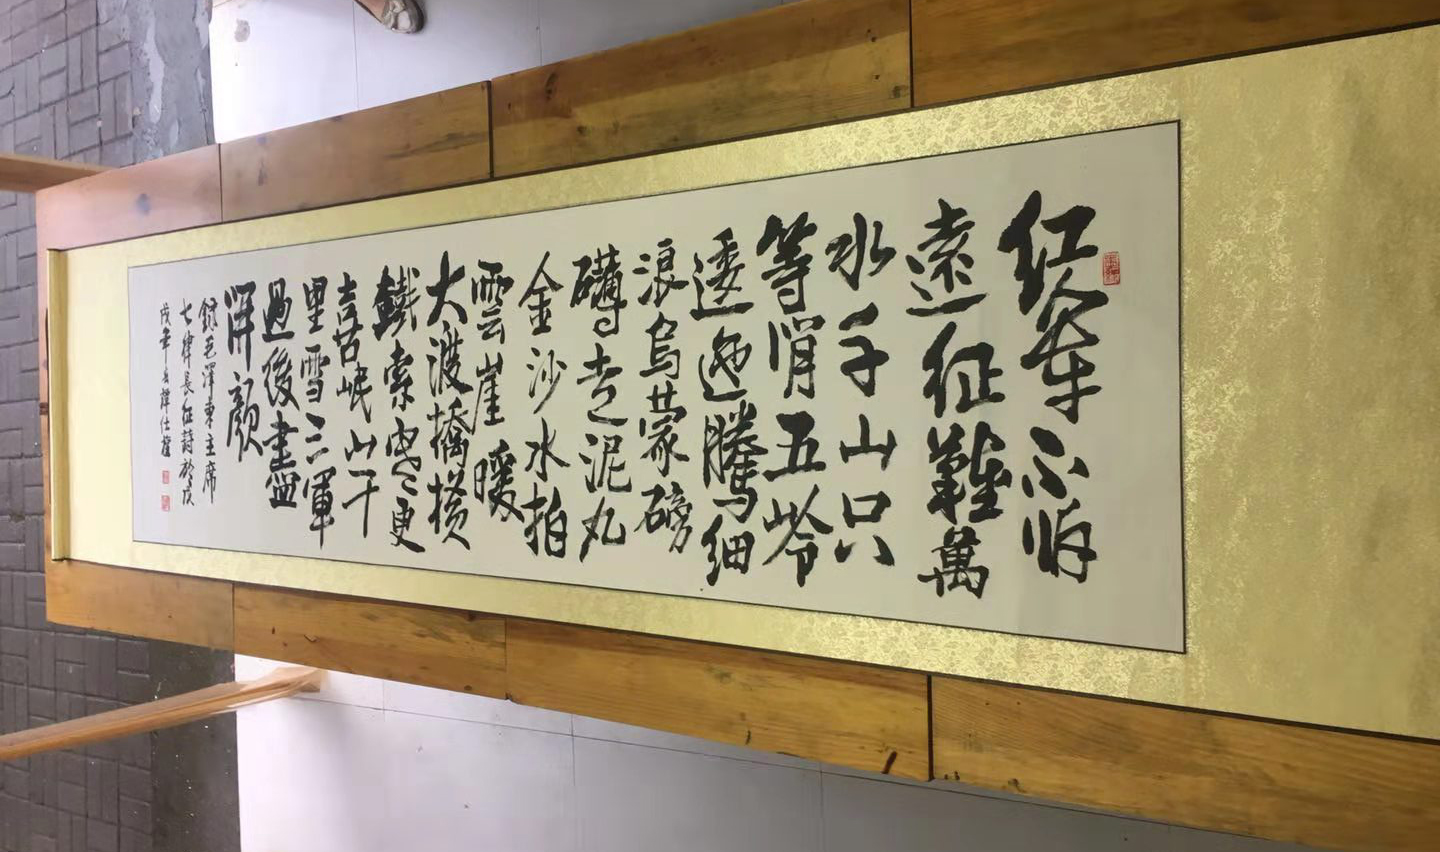 紅軍不怕
遠征難萬
水千山只
等閒五岺
逶迤騰細
浪烏蒙磅
礴走泥丸
金沙水拍
雲崖暖
大渡橋橫
鐵索寒更
喜岷山千
里雪三軍
過後盡
開顏
錄毛澤東主席
七律長征詩於戊
戌年 譚仕